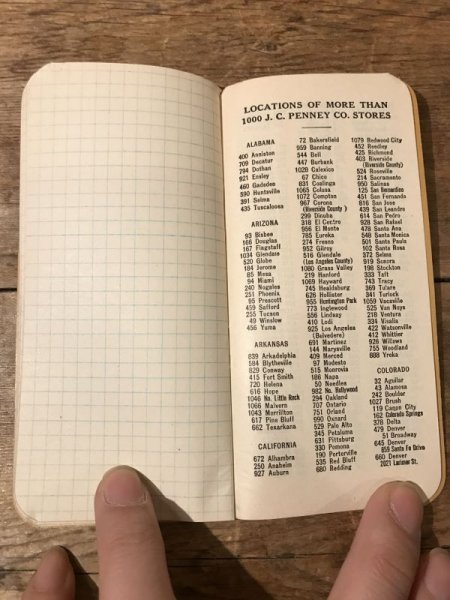 LOCATIONS OF MORE THAN
1000 J. C. PENNEY CO. STORES
ALABAMA
400 Anniston
709 Decatur
794 Dothan
921 Ensley
460 Gadsden
590 Huntsville
391 Selma
435 Tuscaloosa
ARIZONA
93 Bisbee
166 Douglas
167 Flagstaff
1034 Glendale
520 Globe
184 Jerome
85 Mesa
94 Miami
240 Nogales
251 Phoenix
95 Prescott
459 Safford
255 Tucson
49 Winslow
456 Yuma
ARKANSAS
839 Arkadelphia
584 Blytheville
829 Conway
415 Fort Smith
720 Helena
616 Hope
1046 No. Little Rock
1066 Malvern
1043 Morrilton
617 Pine Bluff
662 Texarkana
CALIFORNIA
672 Alhambra
250 Anaheim
927 Auburn
72 Bakersfield
959 Banning
544 Bell
447 Burbank
1028 Calexico
67 Chico
831 Coalinga
1065 Colusa
1072 Compton
967 Corona
(Riverside County)
299 Dinuba
318 El Centro
956 El Monte
785 Eureka
274 Fresno
952 Gilroy
516 Glendale
(Los Angeles County)
1080 Grass Valley
219 Hanford
1069 Hayward
745 Healdsburg
626 Hollister
955 Huntington Park
773 Inglewood
556 Lindsay
410 Lodi
925 Los Angeles
(Belvedere)
691 Martinez
144 Marysville
409 Merced
97 Modesto
515 Monrovia
186 Napa
50 Needles
982 No. Hollywood
294 Oakland
707 Ontario
751 Orland
990 Oxnard
529 Palo Alto
345 Petaluma
631 Pittsburg
330 Pomona
190 Porterville
535 Red Bluff
680 Redding
1079 Redwood City
452 Reedley
425 Richmond
403 Riverside
(Riverside County)
524 Roseville
214 Sacramento
950 Salinas
125 San Bernardino
451 San Fernando
816 San Jose
439 San Leandro
614 San Pedro
928 San Rafael
478 Santa Ana
548 Santa Monica
501 Santa Paula
102 Santa Rosa
372 Selma
919 Sonora
198 Stockton
333 Taft
743 Tracy
369 Tulare
341 Turlock
1059 Vacaville
525 Van Nuys
218 Ventura
334 Visalia
422 Watsonville
412 Whittier
926 Willows
755 Woodland
888 Yreka
COLORADO
32 Aguilar
43 Alamosa
242 Boulder
1027 Brush
119 Canon City
162 Colorado Springs
378 Delta
479 Denver
51 Broadway
645 Denver
859 Santa Fe Drive
660 Denver
2021 Larimer St.